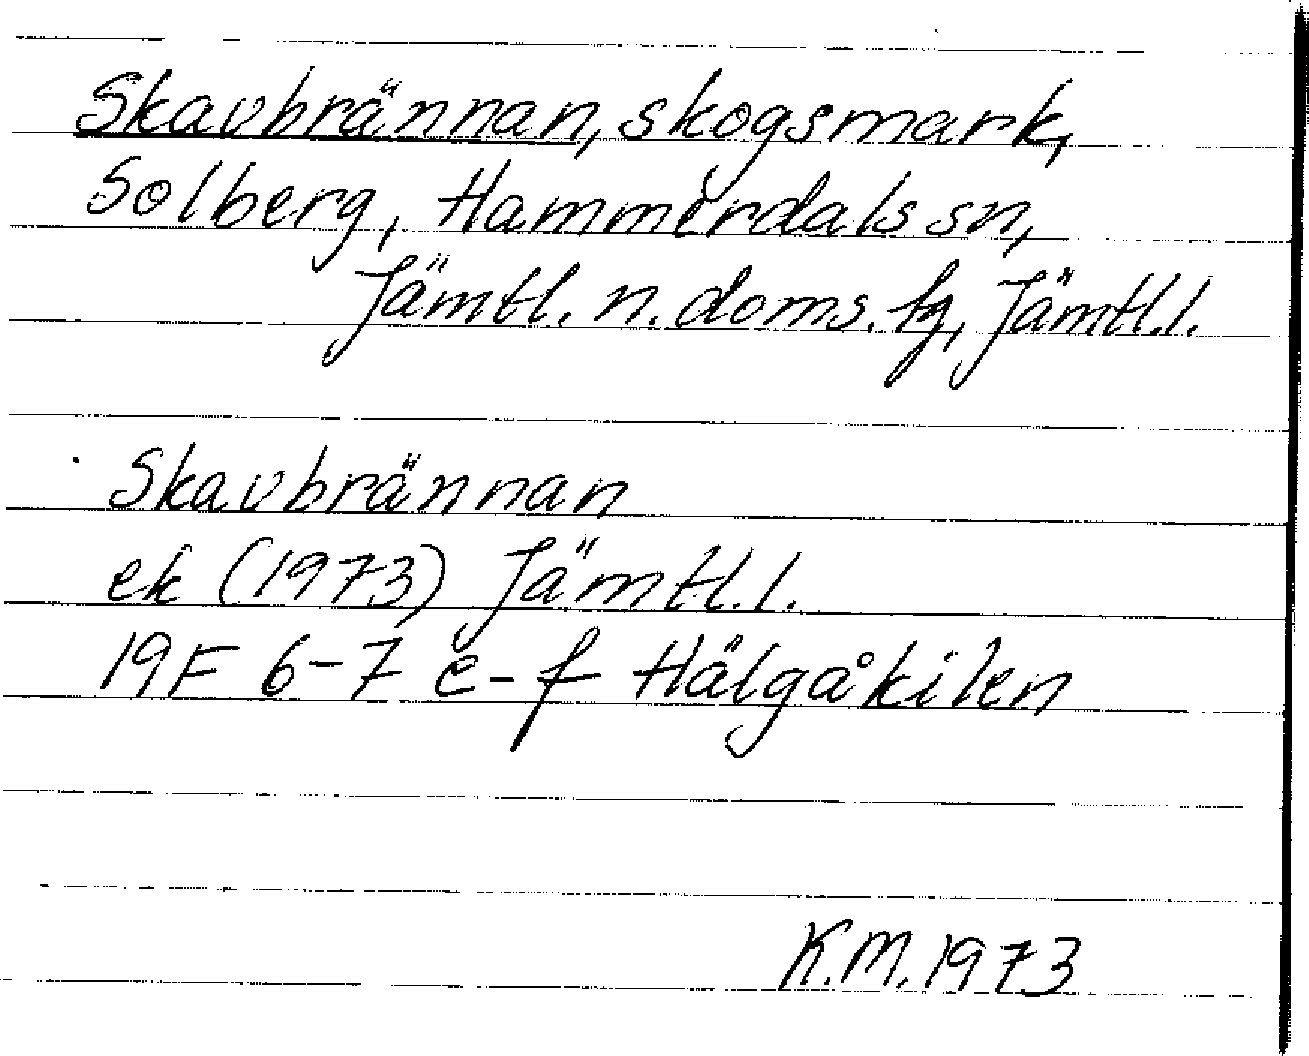 Skavbrännan, skogsmark,
Solberg, Hammerdals sn,
Jämtl. n. doms. tg, Jämtl.l.
Skavbrännan
ek (1973) Jämtl.l.
19F 6-7 e-f Hälgåkilen
K.M. 1973